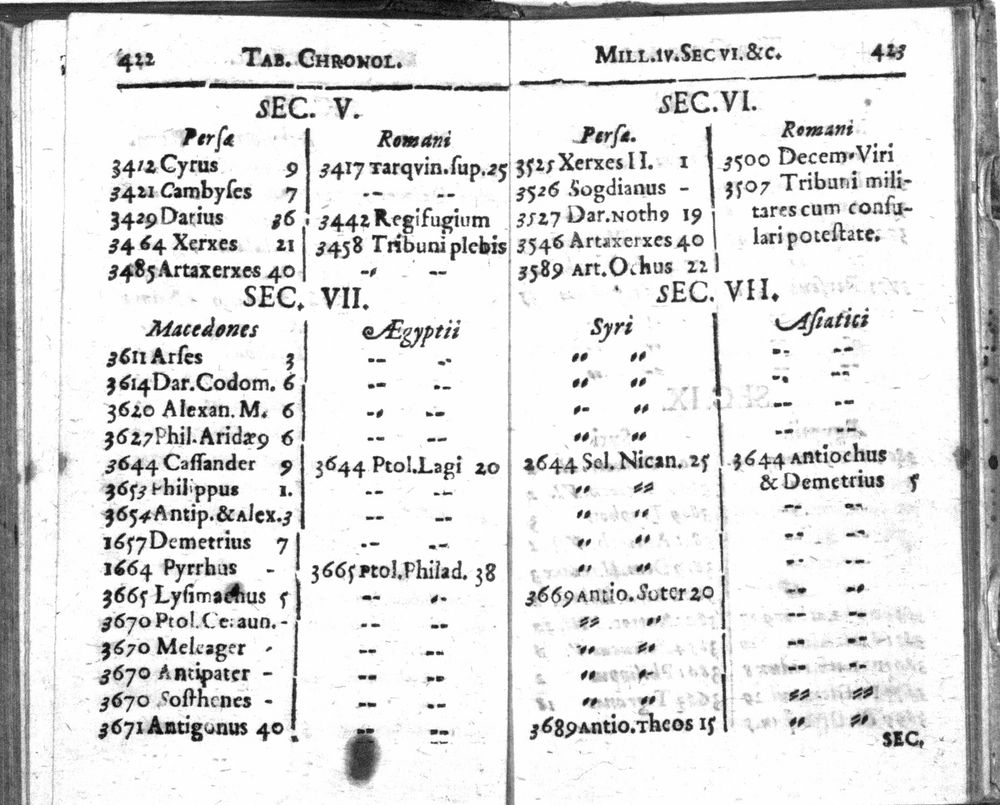 422 TAB. CHRONOL.
SEC. V.
Persæ Romani
3412 Cyrus 9 3417 Tarqvin. sup. 25
3421 Cambyſes 7 -- --
3429 Darius 36 3442 Regifugium
3464 Xerxes 21 3458 Tribuni plebis
3485 Artaxerxes 40 -- --
SEC. VII.
Macedones Ægyptii
3611 Arſes 3 -- --
3614 Dar. Codom. 6 -- --
3620 Alexan. M. 6 -- --
3627 Phil. Aridæ9 6 -- --
3644 Caſſander 9 3644 Ptol. Lagi 20
3653 Philippus 1. -- --
3654 Antip. & Alex. 3 -- --
1657 Demetrius 7 -- --
1664 Pyrrhus - 3665 Ptol. Philad. 38
3665 Lyſimachus 5 -- --
3670 Ptol. Ceraun. - -- --
3670 Meleager - -- --
3670 Antipater - -- --
3670 Soſthenes - -- --
3671 Antigonus 40 -- --
MILL. IV. SEC VI. &C. 423
SEC. VI.
Perſæ. Romani
3525 Xerxes II. 1 3500 Decem-Viri
3526 Sogdianus - 3507 Tribuni mili-
3527 Dar. Noth9 19 tares cum conſu-
3546 Artaxerxes 40 lari poteſtate.
3589 Art. Ochus 22
SEC. VII.
Syri Aſiatici
„ „ -- --
„ „ -- --
„ „ -- --
„ „ -- --
2644 Sel. Nican. 25 3644 Antiochus
„ „ & Demetrius 5
„ „ -- --
„ „ -- --
„ „ -- --
3669 Antio. Soter 20 -- --
„ „ -- --
„ „ -- --
„ „ -- --
„ „ „ „
3689 Antio. Theos 15 „ „
SEC.